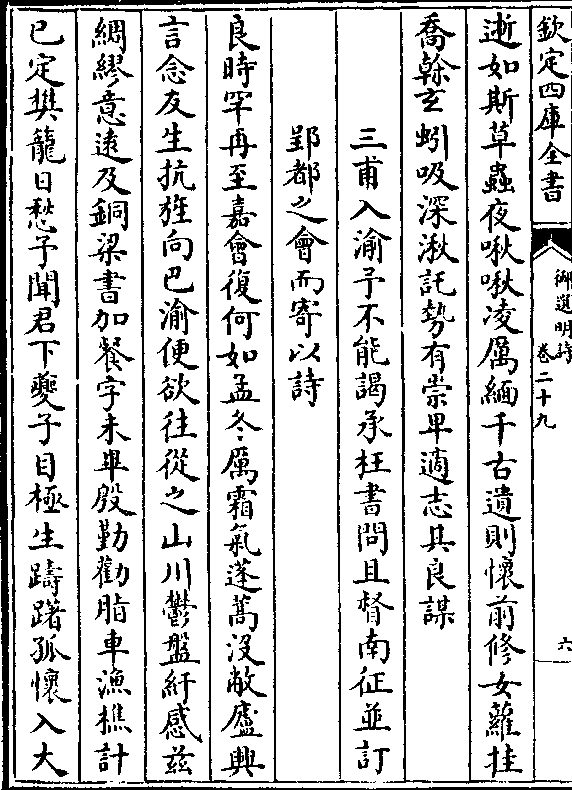 欽定四庫全書
御選明詩
卷二十九
六
逝如斯草蟲夜啾啾凌厲緬千古遺則懷前修女蘿挂
喬榦玄蚓吸深湫託勢有崇卑適志具良謀
三甫入渝予不能謁承枉書問且督南征並訂
郢都之會而寄以詩
良時罕再至嘉會復何如孟冬厲霜氣蓬蒿沒敝廬興
言念友生抗旌向巴渝便欲往從之山川鬱盤紆感茲
綢繆意遠及銅梁書加餐字未畢殷勤勸脂車漁樵計
已定樊籠日愁予聞君下夔子目極生躊躇孤懷入大